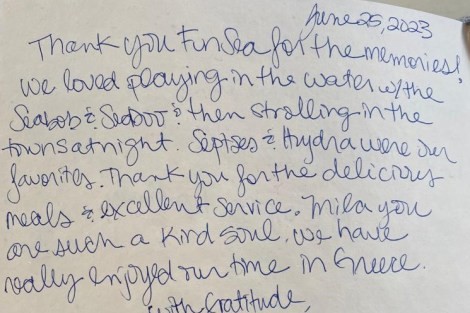 June 25, 2023
Thank you FunSea for the memories!
we loved playing in the water w/the
Seabob & Seadoo & then strolling in the
towns at night. Septses & Hydra were our
favorites. Thank you for the delicious
meals & excellent service. Mila you
are such a kind soul. we have
really enjoyed our time in Greece.
with Gratitude,